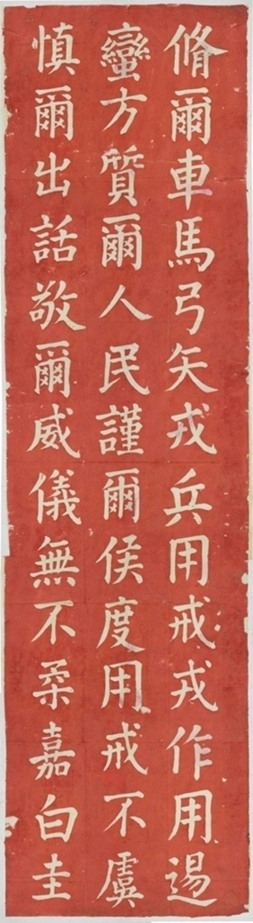 脩爾車馬弓矢戎兵用戒戎作用逷
蠻方質爾人民謹爾侯度用戒不虞
慎爾出話敬爾威儀無不柔嘉白圭